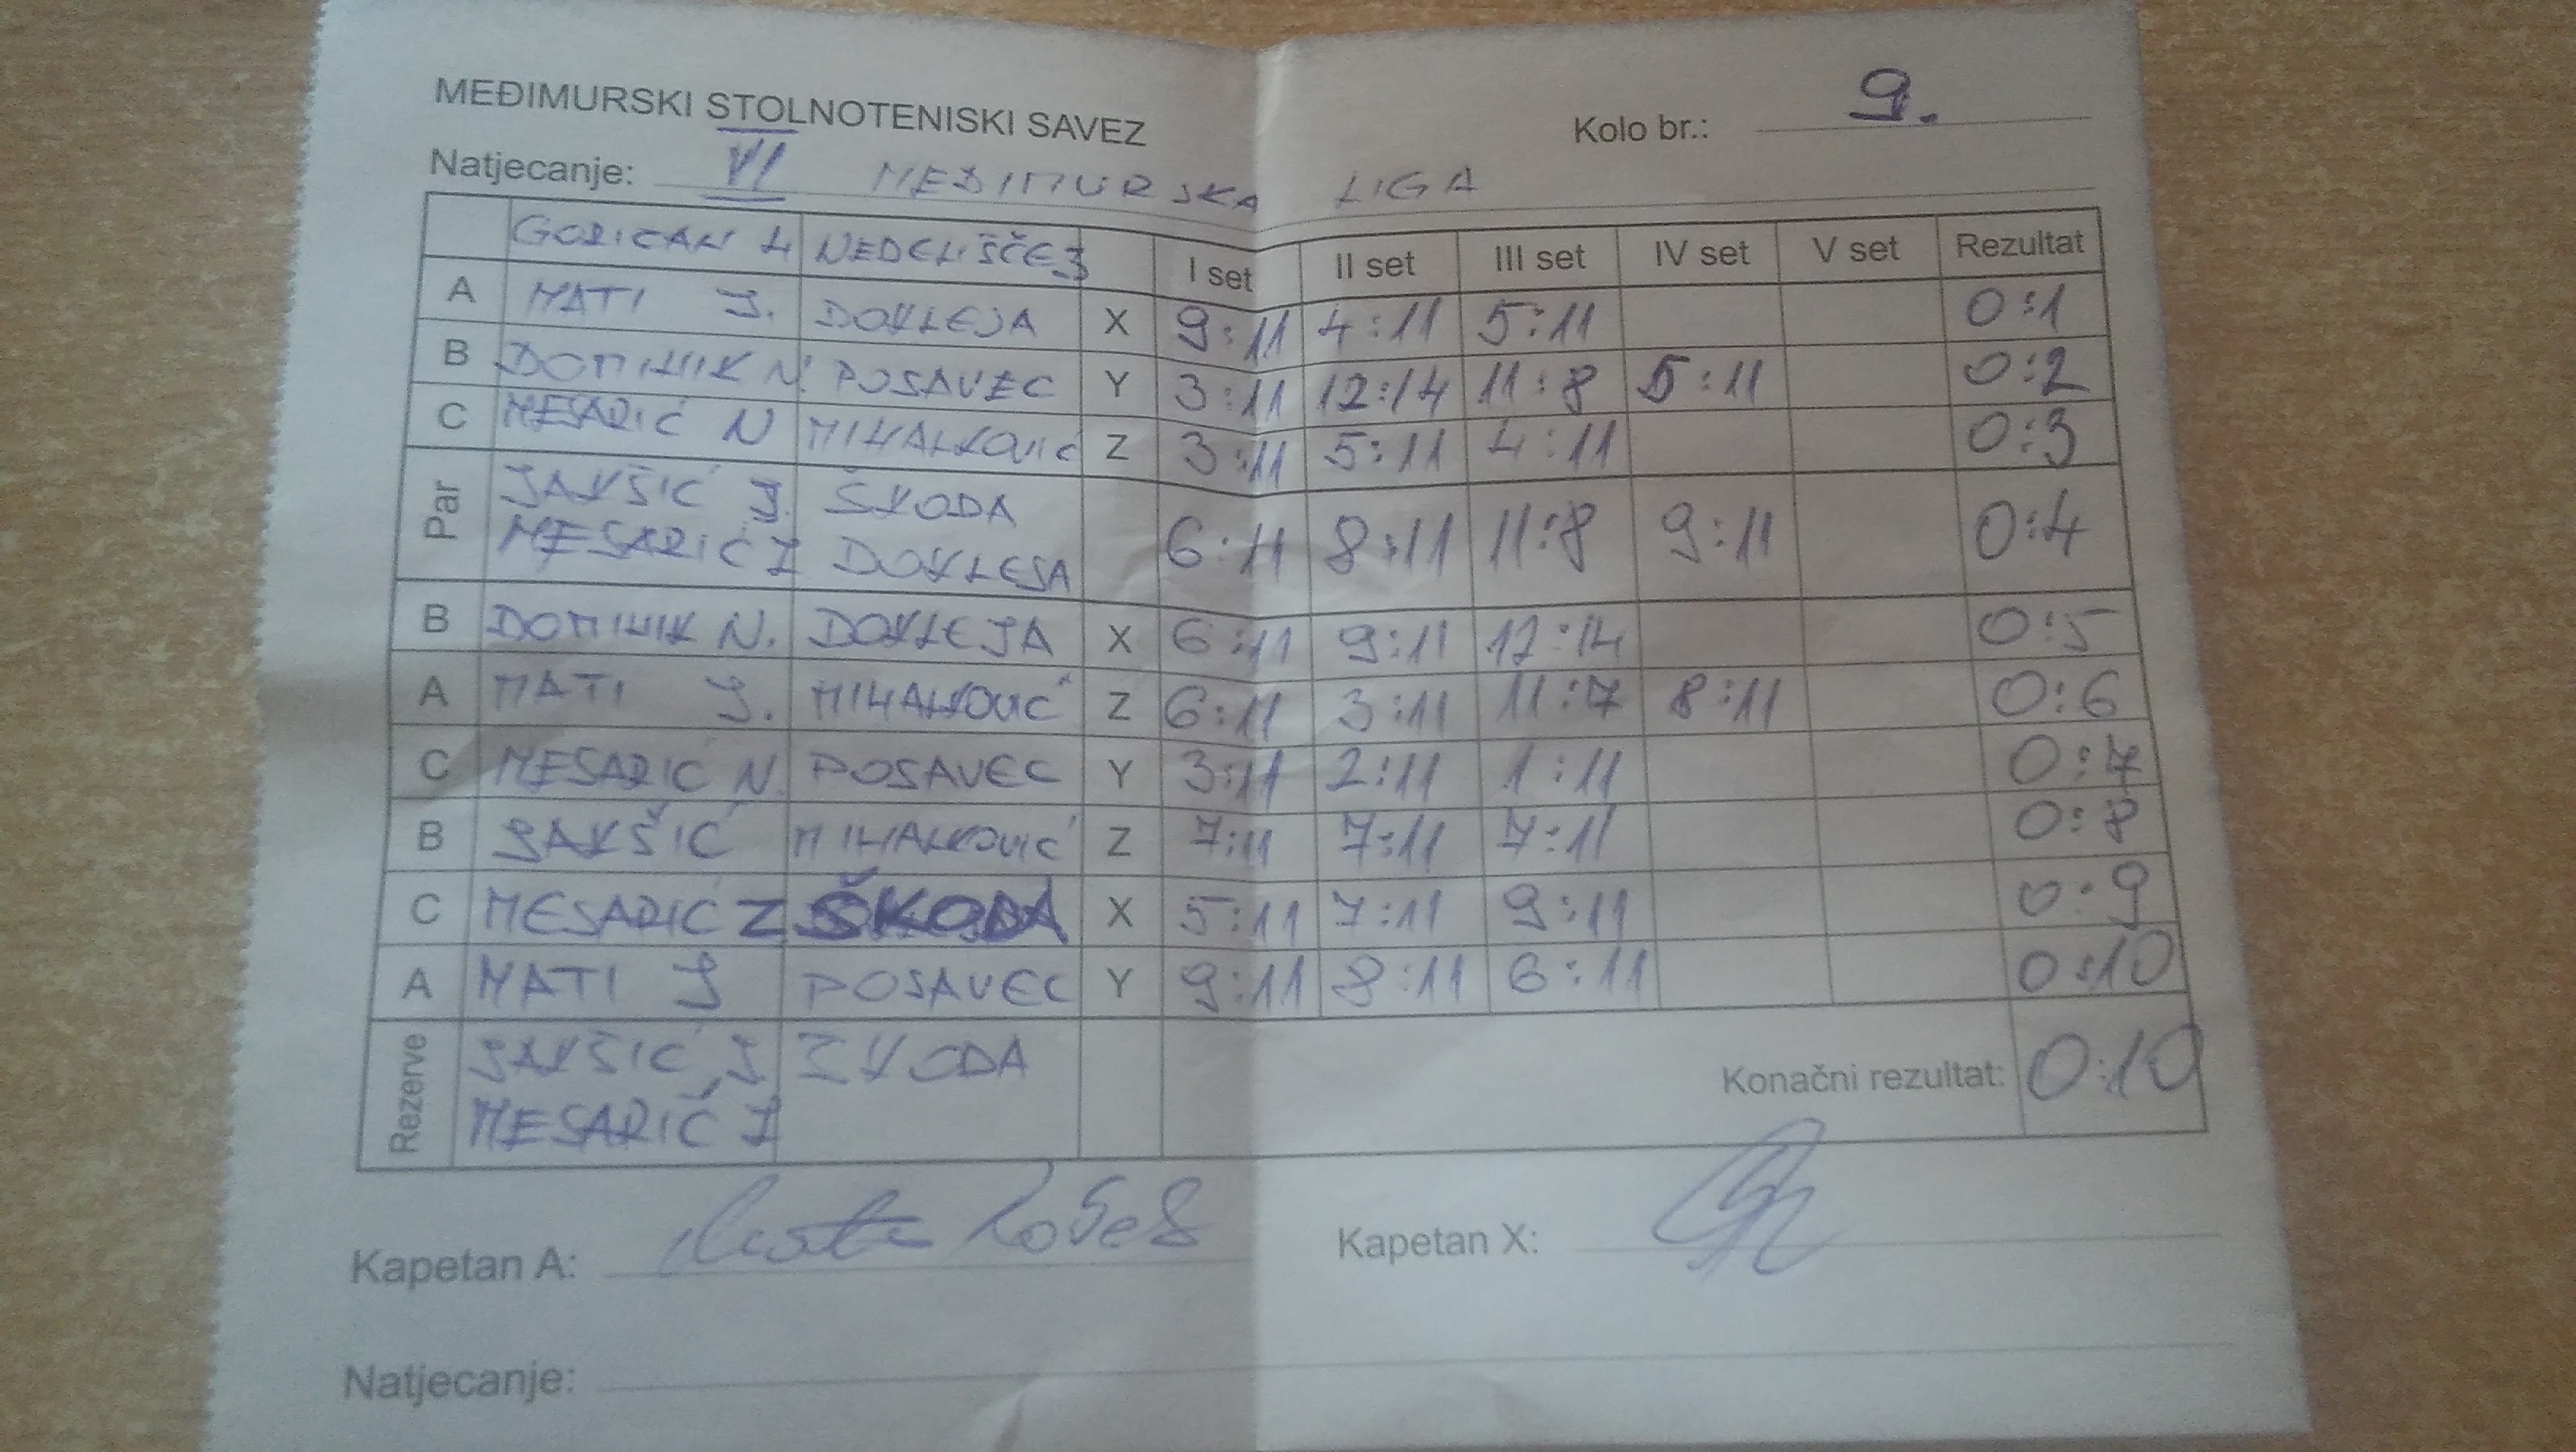 MEĐIMURSKI STOLNOTENISKI SAVEZ
Kolo br.: 9.
Natjecanje: VI MEĐIMURSKA LIGA
GORIČAN 4 NEDELIŠĆE 3 I set II set III set IV set V set Rezultat
A MATI J. DOKLEJA X 9:11 4:11 5:11 0:1
B DOMINIK N. POSAVEC Y 3:11 12:14 11:8 5:11 0:2
C MESARIĆ N MIHALKOVIĆ Z 3:11 5:11 4:11 0:3
Par JAKŠIĆ J. ŠKODA
MESARIĆ Z DOKLEJA 6:11 8:11 11:8 9:11 0:4
B DOMINIK N. DOKLEJA X 6:11 9:11 12:14 0:5
A MATI J. MIHALKOVIĆ Z 6:11 3:11 11:7 8:11 0:6
C MESARIĆ N. POSAVEC Y 3:11 2:11 1:11 0:7
B JAKŠIĆ MIHALKOVIĆ Z 7:11 7:11 7:11 0:8
C MESARIĆ Z ŠKODA X 5:11 7:11 9:11 0:9
A MATI J POSAVEC Y 9:11 8:11 6:11 0:10
Rezerve JAKŠIĆ J ŠKODA
MESARIĆ Z
Konačni rezultat: 0:10
Kapetan A:
Kapetan X:
Natjecanje: